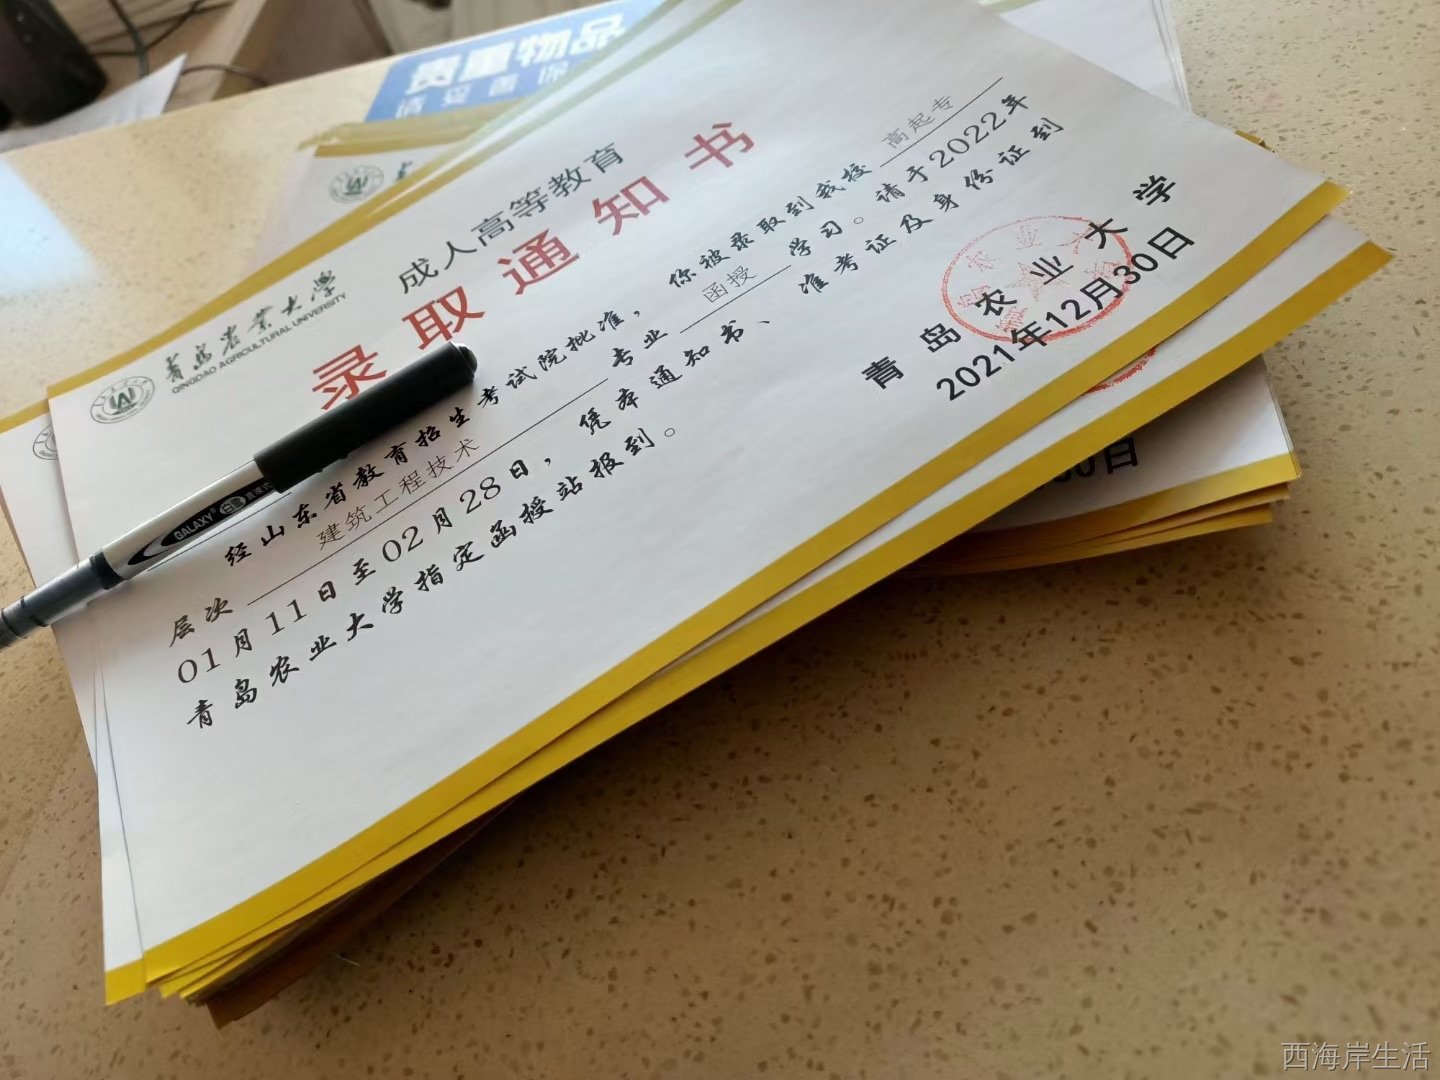 贵重物品
青岛农业大学
QINGDAO AGRICULTURAL UNIVERSITY
成人高等教育
录取通知书
经山东省教育招生考试院批准，你被录取到我校 高起专
层次 建筑工程技术 专业 函授 学习。请于2022年
01月11日至02月28日，凭本通知书、准考证及身份证到
青岛农业大学指定函授站报到。
青岛农业大学
2021年12月30日
30日
GALAXY
西海岸生活